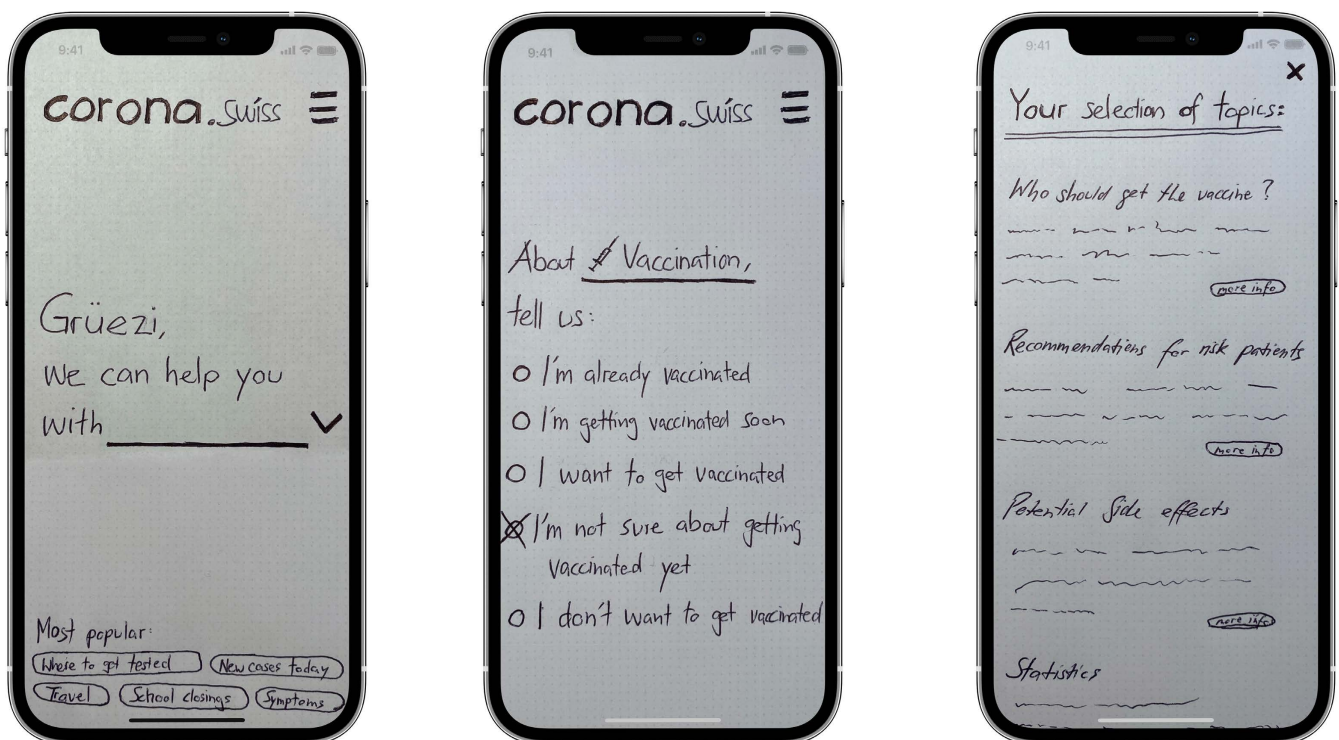 9:41
corona.swiss
Grüezi,
we can help you
with
Most popular:
Where to get tested
New cases today
Travel
School closings
Symptoms
9:41
corona.swiss
About Vaccination,
tell us:
I'm already vaccinated
I'm getting vaccinated soon
I want to get vaccinated
I'm not sure about getting
vaccinated yet
I don't want to get vaccinated
9:41
Your selection of topics:
Who should get the vaccine?
more info
Recommendations for risk patients
more info
Potential Side effects
more info
Statistics